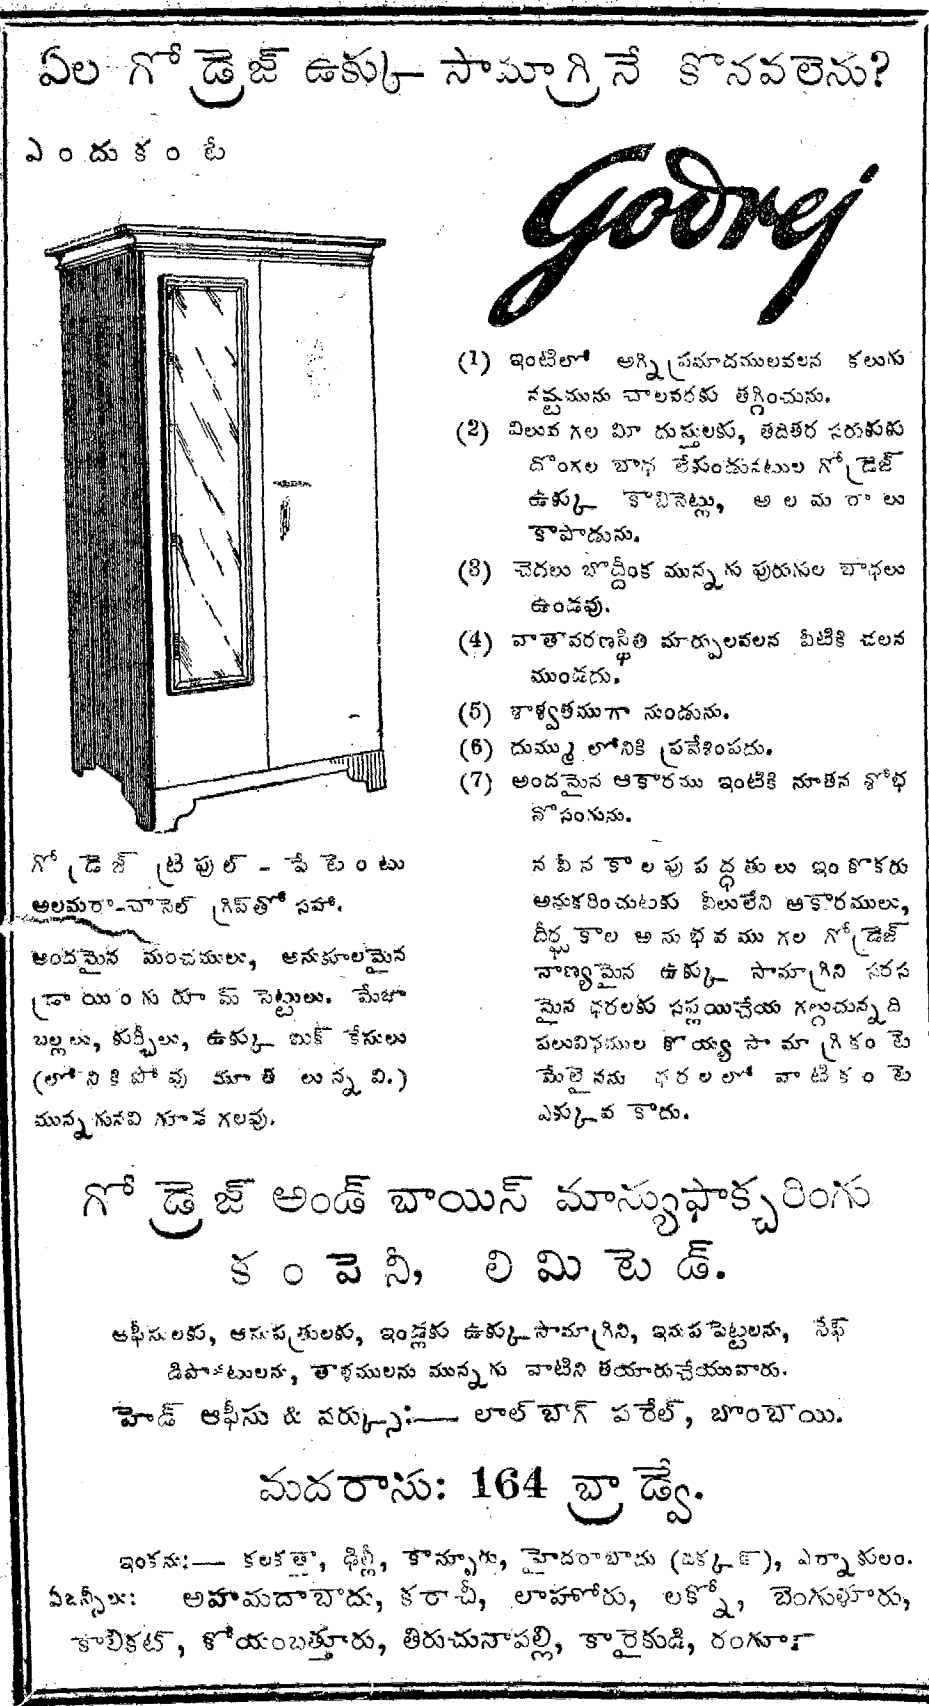 ఏల గోడ్రెజ్ ఉక్కు సామాగ్రినే కొనవలెను?
ఎందుకంటే
Godrej
(1) ఇంటిలో అగ్నిప్రమాదములవలన కలుగు
నష్టమును చాలవరకు తగ్గించును.
(2) విలువ గల మీ దుస్తులకు, తదితర సరుకుకు
దొంగల బాధ లేకుండునటుల గోడ్రెజ్
ఉక్కు కాబినెట్లు, అలమరాలు
కాపాడును.
(3) చెదలు బొద్దింక మున్నగు పురుగుల బాధలు
ఉండవు.
(4) వాతావరణస్థితి మార్పులవలన వీటికి చలన
ముండదు.
(5) శాశ్వతముగా నుండును.
(6) దుమ్ము లోనికి ప్రవేశింపదు.
(7) అందమైన ఆకారము ఇంటికి నూతన శోభ
నొసంగును.
గోడ్రెజ్ ట్రిపుల్ - పేటెంటు
అలమరా-చానెల్ గ్రిప్‌తో సహా.
అందమైన మంచములు, అనుకూలమైన
డ్రాయింగు రూమ్ సెట్టులు. మేజా
బల్లలు, కుర్చీలు, ఉక్కు బుక్ కేసులు
(లోనికిపోవు మూత లున్నవి.)
మున్నగునవి గూడ గలవు.
నవీనకాలపు పద్ధతులు ఇంకొకరు
అనుకరించుటకు వీలులేని ఆకారములు,
దీర్ఘకాల అనుభవము గల గోడ్రెజ్
నాణ్యమైన ఉక్కు సామాగ్రిని సరస
మైన ధరలకు సప్లయిచేయ గల్గుచున్నది
పలువిధముల కొయ్య సామాగ్రికంటె
మేలైనను ధరలలో వాటికంటె
ఎక్కువ కాదు.
గోడ్రెజ్ అండ్ బాయిస్ మాన్యుఫాక్చరింగు
కంపెనీ, లిమిటెడ్.
ఆఫీసులకు, ఆసుపత్రులకు, ఇండ్లకు ఉక్కుసామాగ్రిని, ఇనుపపెట్టలను, సేఫ్
డిపాజిటులను, తాళములను మున్నగు వాటిని తయారుచేయువారు.
హెడ్ ఆఫీసు & వర్క్సు:— లాల్‌బాగ్ పరేల్, బొంబాయి.
మదరాసు: 164 బ్రాడ్వే.
ఇంకను:— కలకత్తా, ఢిల్లీ, కాన్పూరు, హైదరాబాదు (డక్కన్), ఎర్నాకులం.
ఏజన్సీలు: అహమదాబాదు, కరాచీ, లాహోరు, లక్నో, బెంగుళూరు,
కాలికట్, కోయంబత్తూరు, తిరుచునాపల్లి, కారైకుడి, రంగూన్